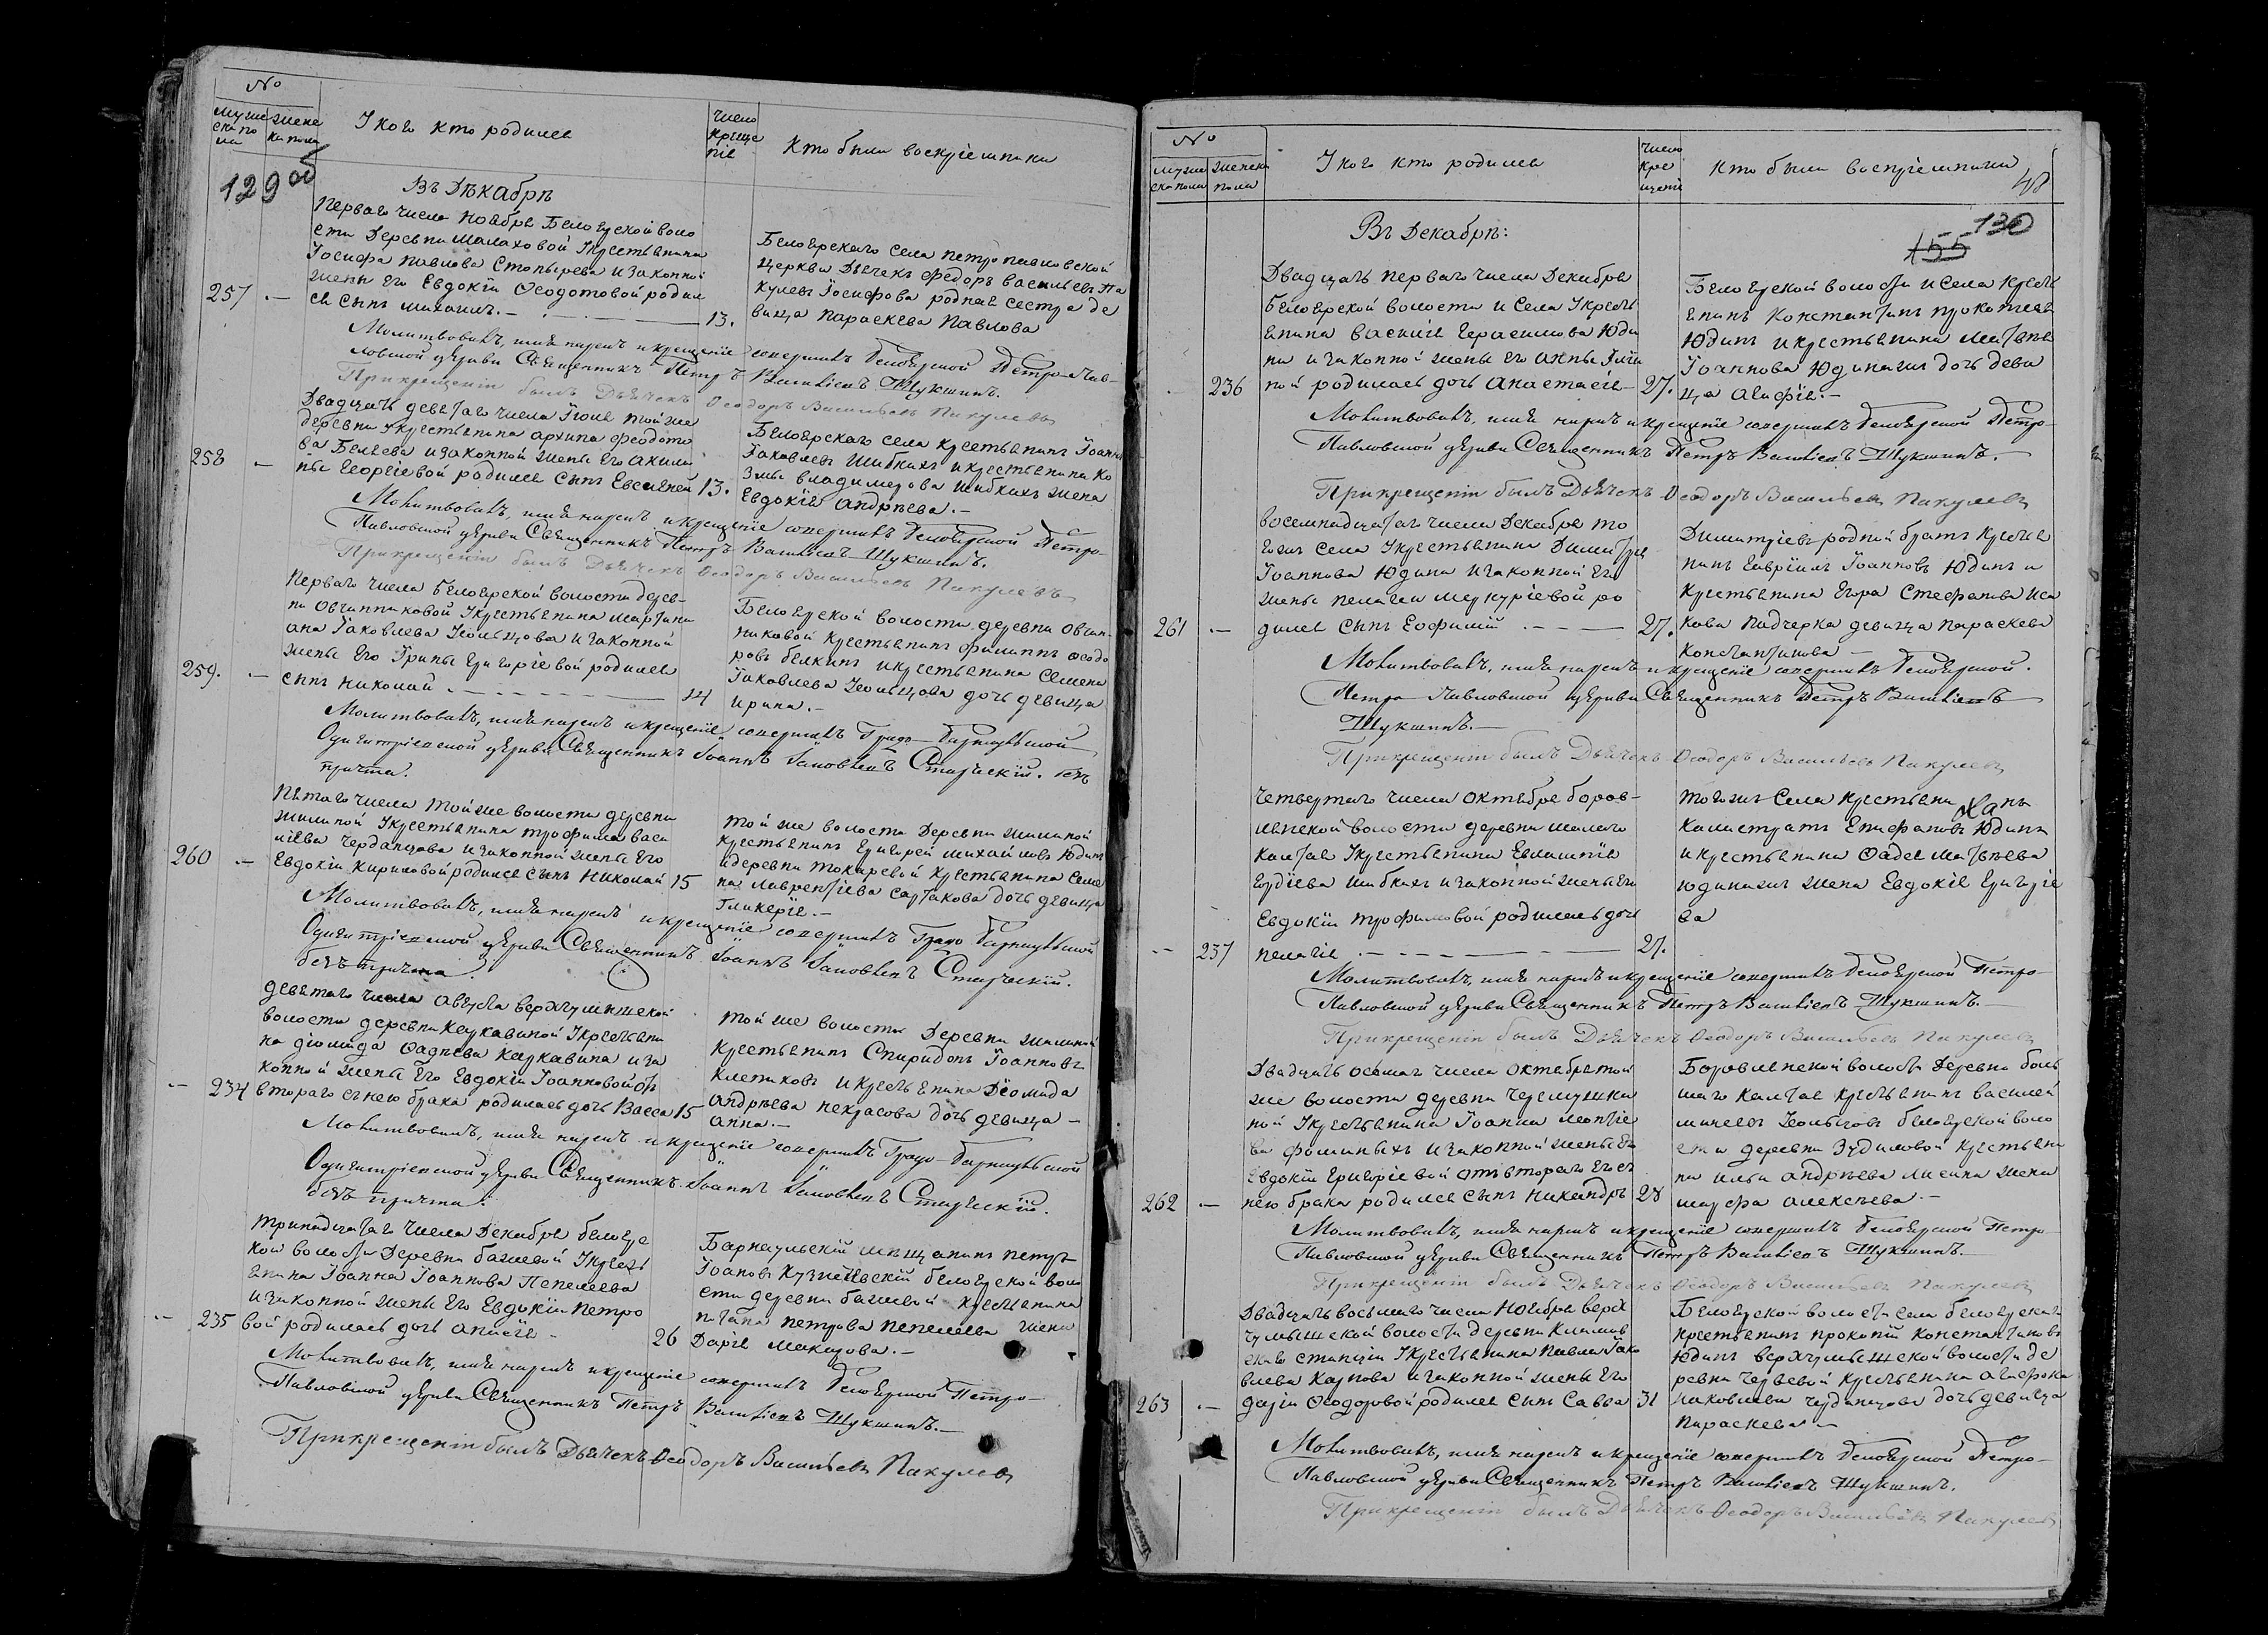 №
муже
ска по
ла
женс
ка пола
У кого кто родился
число
креще
нія
Кто были воспріемники
129 об
Въ Декабрѣ
Перваго числа Ноября Белоярской воло
сти Деревни Малаховой Укрестьянина
Іосифа Павлова Стопырева и законной
жены его Евдокіи Ѳеодотовой родил
257 — ся сынъ Михаилъ. — 13.
Белоярскаго села Петропавловской
церкви Дьячекъ Федоръ Васильевъ Па
кулевъ Іосифова родная сестра де
вица Параскева Павлова
Молитвовалъ, имя нарекъ и крещеніе совершилъ Белоярской Петро-Пав-
ловской церкви Священникъ Петръ Василіевъ Шукшинъ.
При крещеніи былъ Дьячекъ Ѳеодоръ Васильевъ Пакулевъ
Двадцать девятаго числа Іюля той же
деревни Укрестьянина Архипа Феодото
ва Беляева и законной жены его Акили
258 — ны Георгіевой родился сынъ Евсигней 13.
Белоярскаго села крестьянинъ Іоаннъ
Іаковлевъ Шибкихъ и крестьянина Ко
змы Владимерова Шибкихъ жена
Евдокія Андрѣева. —
Молитвовалъ, имя нарекъ и крещеніе совершилъ Белоярской Петро-
Павловской церкви Священникъ Петръ Василіевъ Шукшинъ.
При крещеніи былъ Дьячекъ Ѳеодоръ Васильевъ Пакулевъ
Перваго числа Белоярской волости дерев-
ни Овчинниковой Укрестьянина Мартини
ана Іаковлева Усольцова и законной
жены его Ірины Григоріевой родился
259. — сынъ Николай — 14
Белоярской волости деревни Овчин-
никовой крестьянинъ Филиппъ Феодо
ровъ Белкинъ и крестьянина Семена
Іаковлева Усольцова дочь девица
Ирина. —
Молитвовалъ, имя нарекъ и крещеніе совершилъ Градо-Барнаульской
Одигитріевской церкви Священникъ Іоаннъ Іаковлевъ безъ
причта.
Пятаго числа той же волости деревни
Жилиной Укрестьянина Трофима Васи
ліева Черданцова и законной жены его
260 — Евдокіи Кириловой родился сынъ Николай 15
той же волости Деревни Жилиной
крестьянинъ Григорей Михайловъ Юдинъ
и деревни Токаревой крестьянина Семе
на Лаврентіева Сартакова дочь девица
Гликерія. —
Молитвовалъ, имя нарекъ и крещеніе совершилъ Градо Барнаульской
Одигитріевской церкви Священникъ Іоаннъ Іаковлевъ
безъ причта.
Девятаго числа Августа Верхчумышской
волости деревни Каркавиной Укрестьяни
на Діомида Фадѣева Каркавина и за
конной жены его Евдокіи Іоанновой от
— 234 втораго съ нею брака родилась дочь Васса 15
той же волости Деревни Жилиной
Крестьянинъ Спиридонъ Іоанновъ
Клепиковъ и крестьянина Діомида
Андрѣева Некрасова дочь девица
Анна. —
Молитвовалъ, имя нарекъ и крещеніе совершилъ Градо-Барнаульской
Одигитріевской церкви Священникъ Іоаннъ Іаковлевъ
безъ причта.
Тринадцатаго числа Декабря Белояр
кой волости Деревни Бажевой Укресть
янина Іоанна Іоаннова Пепеляева
и законной жены его Евдокіи Петро
— 235 вой родилась дочь Анисія — 26
Барнаульскій мещанинъ Петръ
Іоановъ Кузнецевскій Белоярской воло
сти деревни Бажевой крестьянина
Петрова Пепеляева жена
Дарія Макарова. —
Молитвовалъ, имя нарекъ и крещеніе совершилъ Белоярской Петро-
Павловской церкви Священникъ Петръ Василіевъ Шукшинъ. —
При крещеніи былъ Дьячекъ Ѳеодоръ Васильевъ Пакулевъ
№
муже
ска пола
женска
пола
У кого кто родился
число
кре
щенія
Кто были воспріемники
48
130
155
Въ Декабрѣ:
Двадцать перваго числа Декабря
Белоярской волости и села Укресть
янина Василія Герасимова Юди
на и законной жены его Анны
236 ной родилась дочь Анастасія — 27.
Белоярской волости и села кресть
янинъ Константинъ Прокопіевъ
Юдинъ и крестьянина Матвѣя
Іоаннова Юдина дочь деви
ца Агафія. —
Молитвовалъ, имя нарекъ и крещеніе совершилъ Белоярской Петро-
Павловской церкви Священникъ Петръ Василіевъ Шукшинъ. —
При крещеніи былъ Дьячекъ Ѳеодоръ Васильевъ Пакулевъ
Восемнадцатаго числа Декабря то
гожъ села Укрестьянина Димитрія
Іоаннова Юдина и законной его
жены Пелагеи Меркуріевой ро
261 — дился сынъ Еофимій — 27.
Димитріевъ родной братъ крестья
нинъ Гавріилъ Іоанновъ Юдинъ и
крестьянина Егора Стефанова Иса
кова Падчерка девица Параскева
Константинова —
Молитвовалъ, имя нарекъ и крещеніе совершилъ Белоярской
Петро-Павловской церкви Священникъ Петръ Василіевъ
Шукшинъ. —
При крещеніи былъ Дьячекъ Ѳеодоръ Васильевъ Пакулевъ
Четвертаго числа Октября Боров-
лянской волости деревни Малаго
Калтая Укрестьянина Евлампія
Гордіева Шибкихъ и законной жены его
Евдокіи Трофимовой родилась дочь
— 237 Пелагія — 27.
тогожъ села крестьянинъ
Калистратъ Епифановъ Юдинъ
и крестьянина Фадея Матвѣева
Юдина жена Евдокія Григоріе
ва
Молитвовалъ, имя нарекъ и крещеніе совершилъ Белоярской Петро-
Павловской церкви Священникъ Петръ Василіевъ Шукшинъ. —
При крещеніи былъ Дьячекъ Ѳеодоръ Васильевъ Пакулевъ
Двадцать осьмаго числа Октября той
же волости деревни Черемушки
ной Укрестьянина Іоанна Леонтіе
ва Фоминыхъ и законной жены его
Евдокіи Григоріевой отъ втораго его съ
262 — нею брака родился сынъ Никандръ 28
Боровлянской волости Деревни Боль
шаго Калтая крестьянинъ Василей
Минеевъ Усольцовъ Белоярской воло
сти деревни Зудиловой крестьяни
на Ильи Андрѣева Лисина жена
Марфа Алексѣева. —
Молитвовалъ, имя нарекъ и крещеніе совершилъ Белоярской Петро
Павловской церкви Священникъ Петръ Василіевъ Шукшинъ. —
При крещеніи былъ Дьячекъ Ѳеодоръ Васильевъ Пакулевъ
Двадцать восьмаго числа Ноября Верх
чумышской волости деревни
скаго станціи Укрестьянина Павла Іако
влева Карпова и законной жены его
263 — Даріи Ѳеодоровой родился сынъ Савва 31
Белоярской волости села Белоярскаго
крестьянинъ Прокопій Константиновъ
Юдинъ Верхчумышской волости де
ревни крестьянина Агафона
Іаковлева Черданцова дочь девица
Параскева —
Молитвовалъ, имя нарекъ и крещеніе совершилъ Белоярской Петро-
Павловской церкви Священникъ Петръ Василіевъ Шукшинъ.
При крещеніи былъ Дьячекъ Ѳеодоръ Васильевъ Пакулевъ